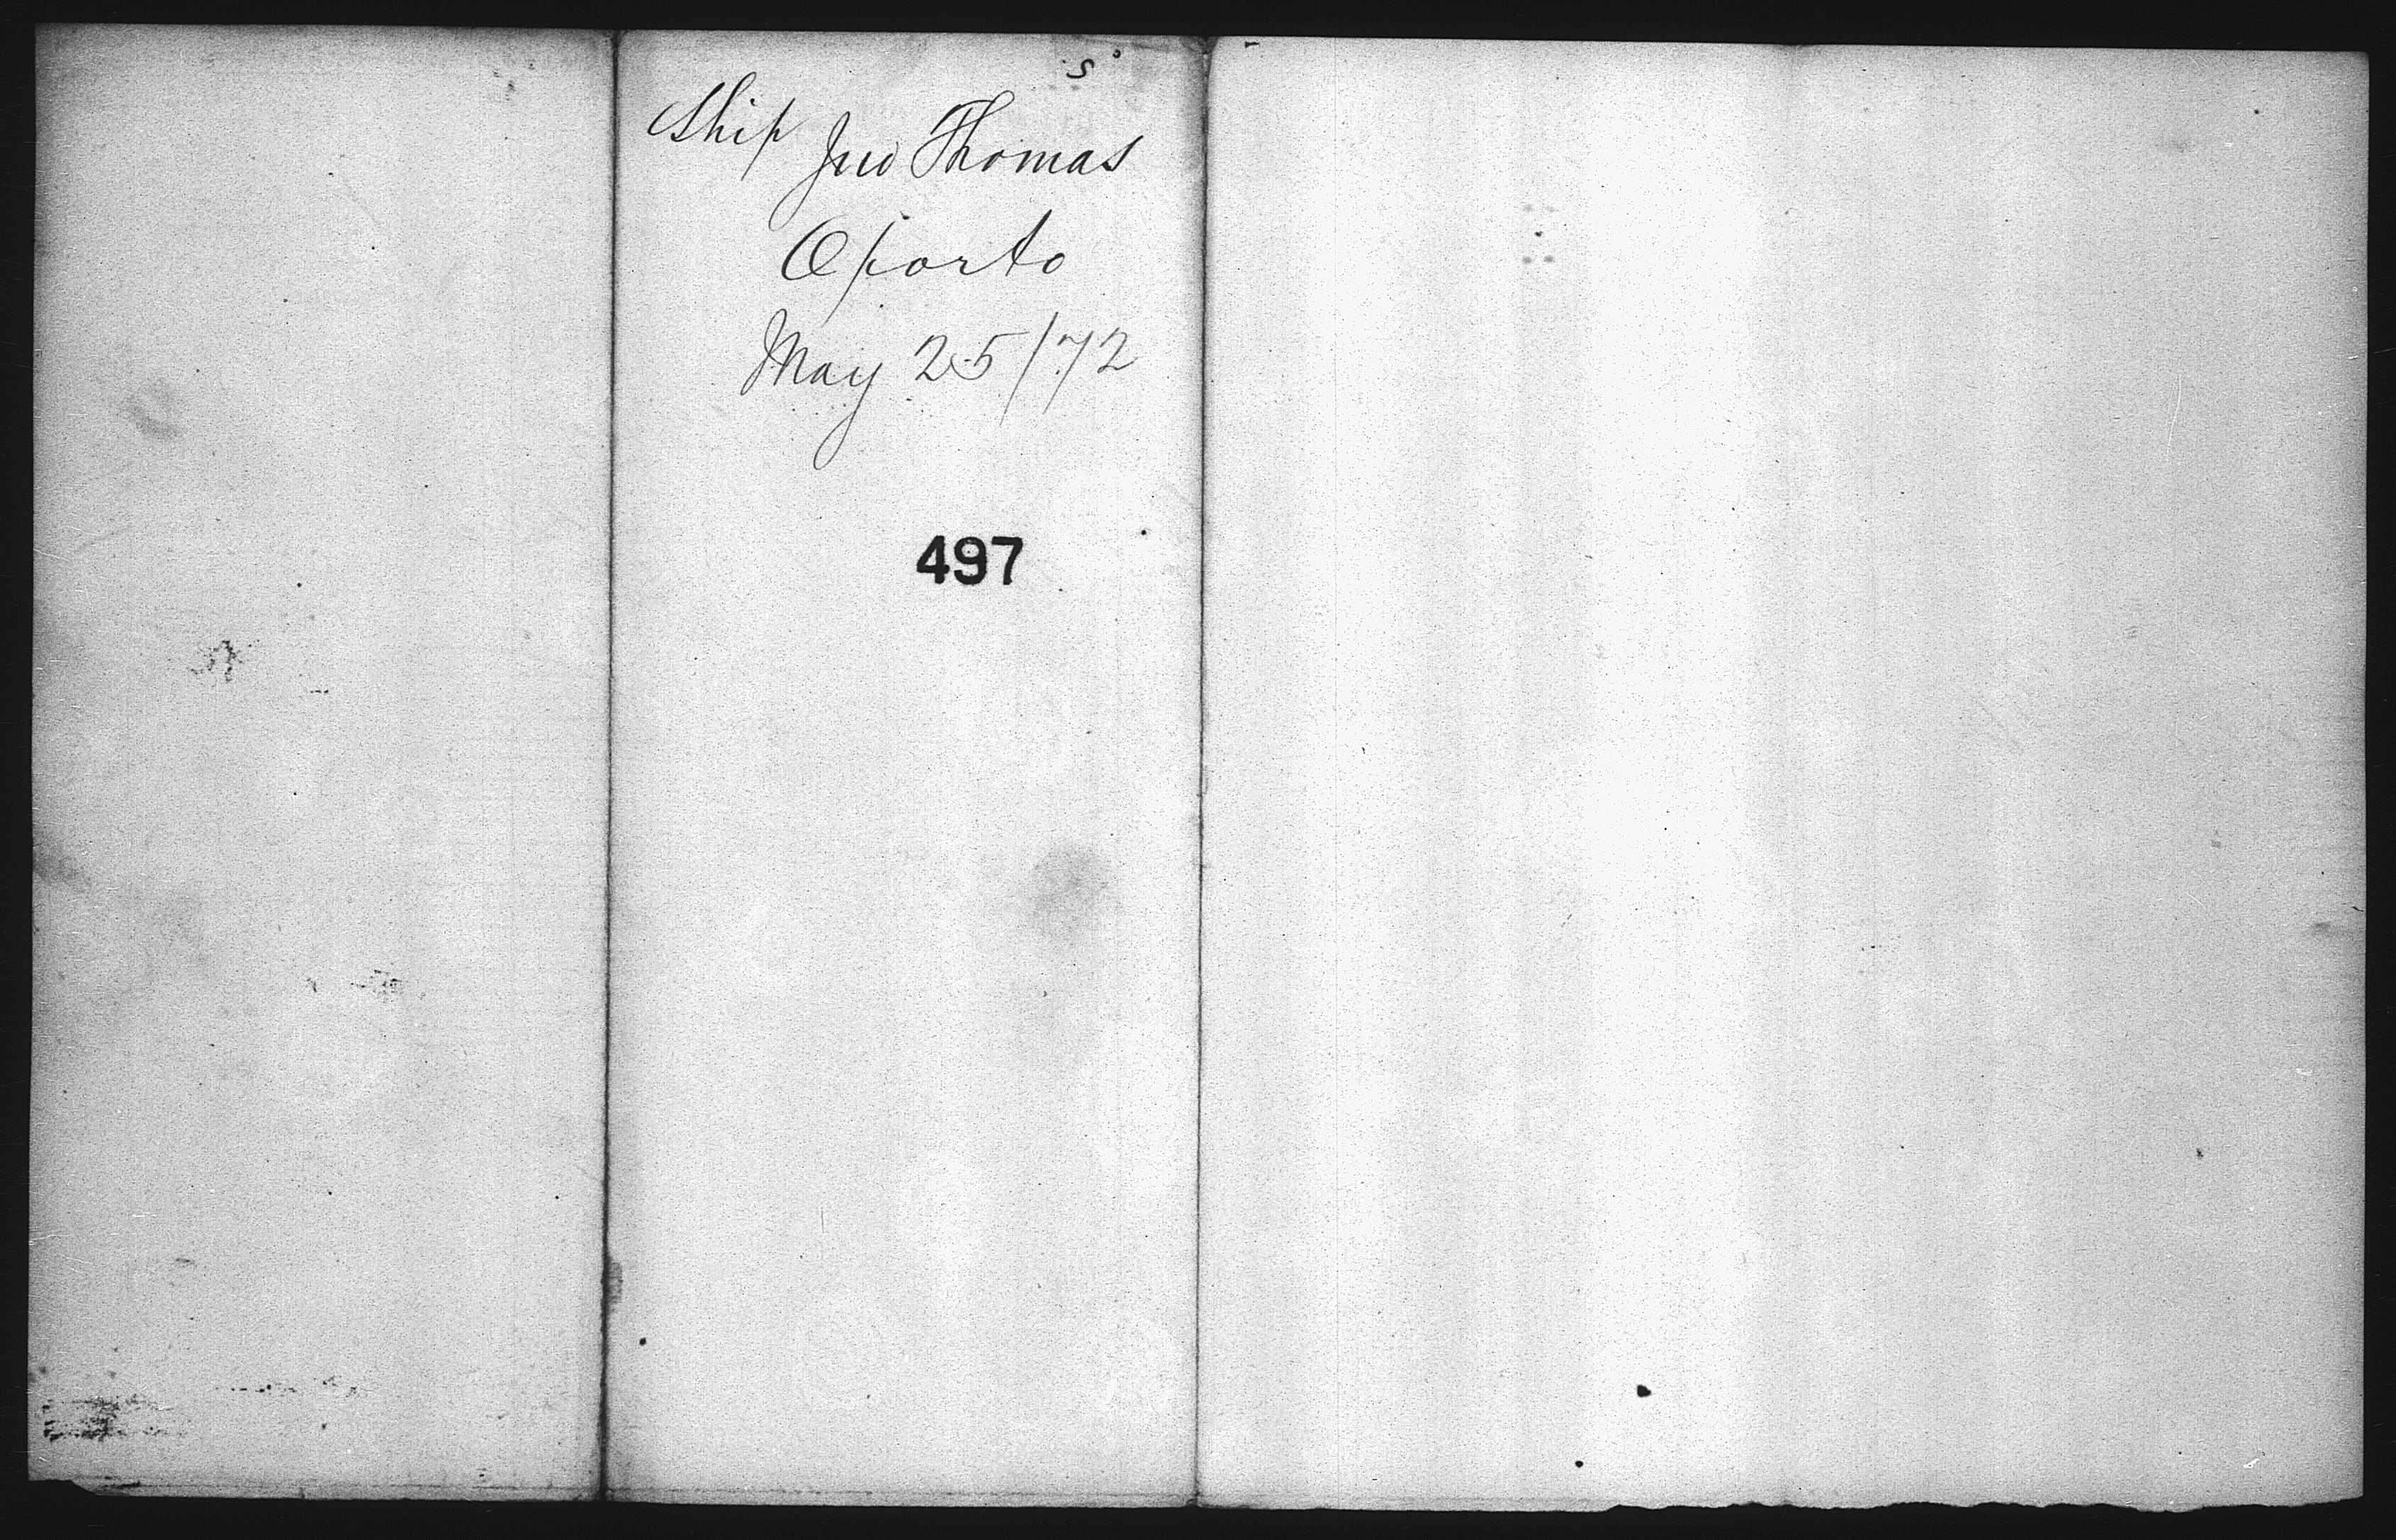 Ship Jno Thomas
Oporto
May 25/72
497